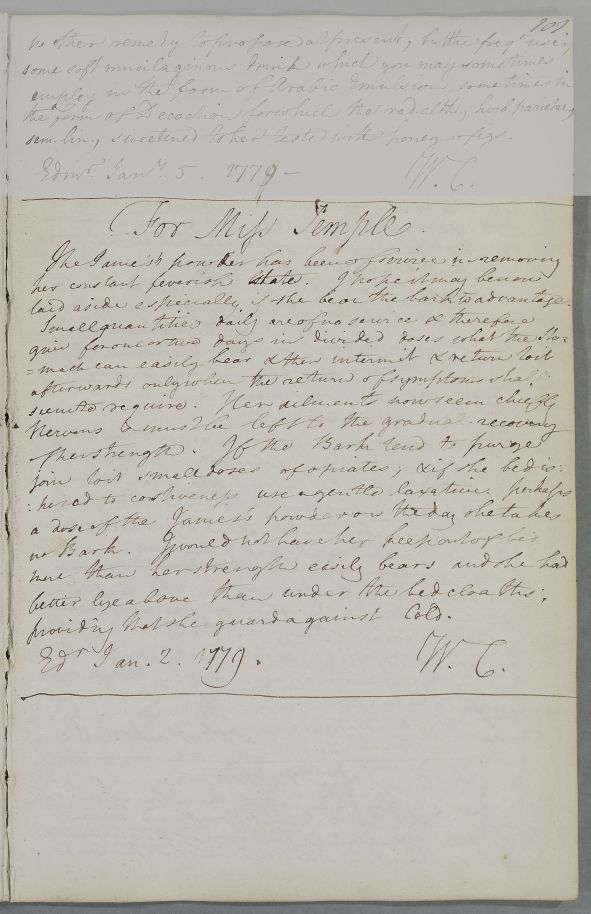 107
no other remedy to propose at present; but the freqt. use of
some soft mucilaginous drink which you may sometimes
employ in the form of Arabic Emulsion, sometimes in
the form of Decoction for which the rad. alth., herb. parietar.,
sem. lin., sweetened to her taste with honey or figs.
Edinr. Jany. 5. 1779 - W. C.
For Miss Temple.
The James's powder has been of service in removing
her constant feverish state. I hope it may be now
laid aside especially if she bear the bark to advantage.
Small quantities daily are of no service & therefore
give for one or two days in divided doses what the Sto-
-mach can easily bear & then intermit & return to it
afterwards only when the return of symptoms shall
seem to require. Her ailments now seem chiefly
Nervous & must be left to the gradual recovery
of her strength. If the Bark tend to purge
join to it small doses of opiates; & if she be dis:
:posed to costiveness use a gentle laxative, perhaps
a dose of the James's powder on the day she takes
no Bark. I would not have her keep out of bed
more than her strength easily bears and she had
better lye above than under the bed cloaths;
providing that she guard against Cold.
Edr. Jan. 2. 1779. W. C.